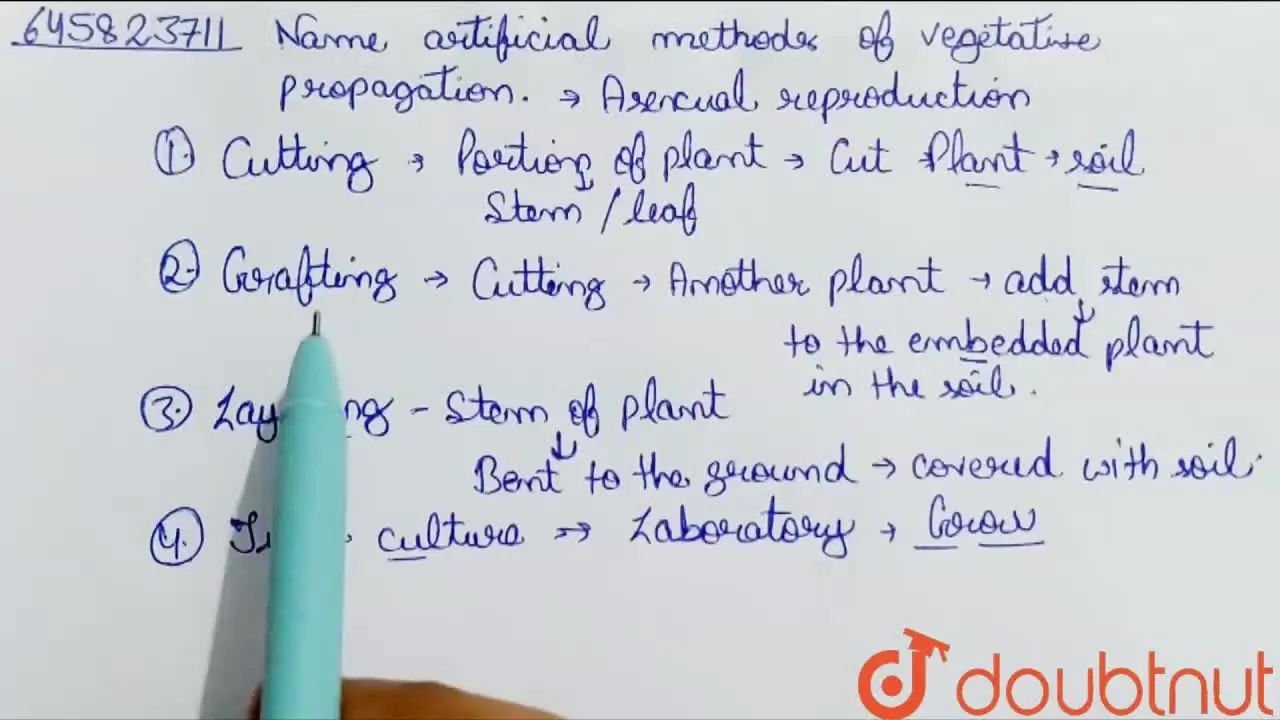 645823711 Name artificial methods of vegetative
propagation. → Asexual reproduction
1. Cutting → Portion of plant → Cut Plant → soil
Stem / leaf
2. Grafting → Cutting → Another plant → add stem
to the embedded plant
in the soil.
3. - Stem of plant
Bent to the ground → covered with soil.
4. culture → Laboratory → Grow
doubtnut